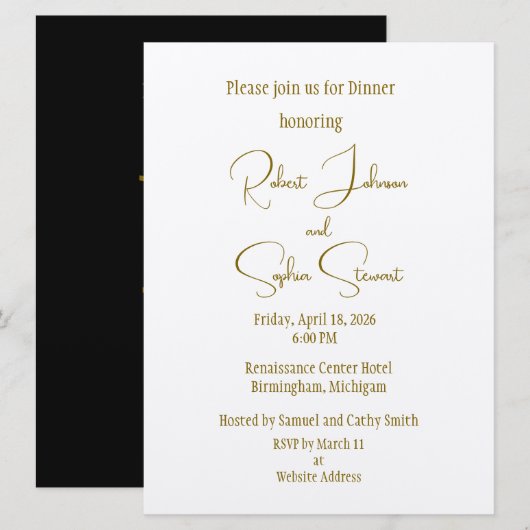 Please join us for Dinner
honoring
Robert Johnson
and
Sophia Stewart
Friday, April 18, 2026
6:00 PM
Renaissance Center Hotel
Birmingham, Michigam
Hosted by Samuel and Cathy Smith
RSVP by March 11
at
Website Address